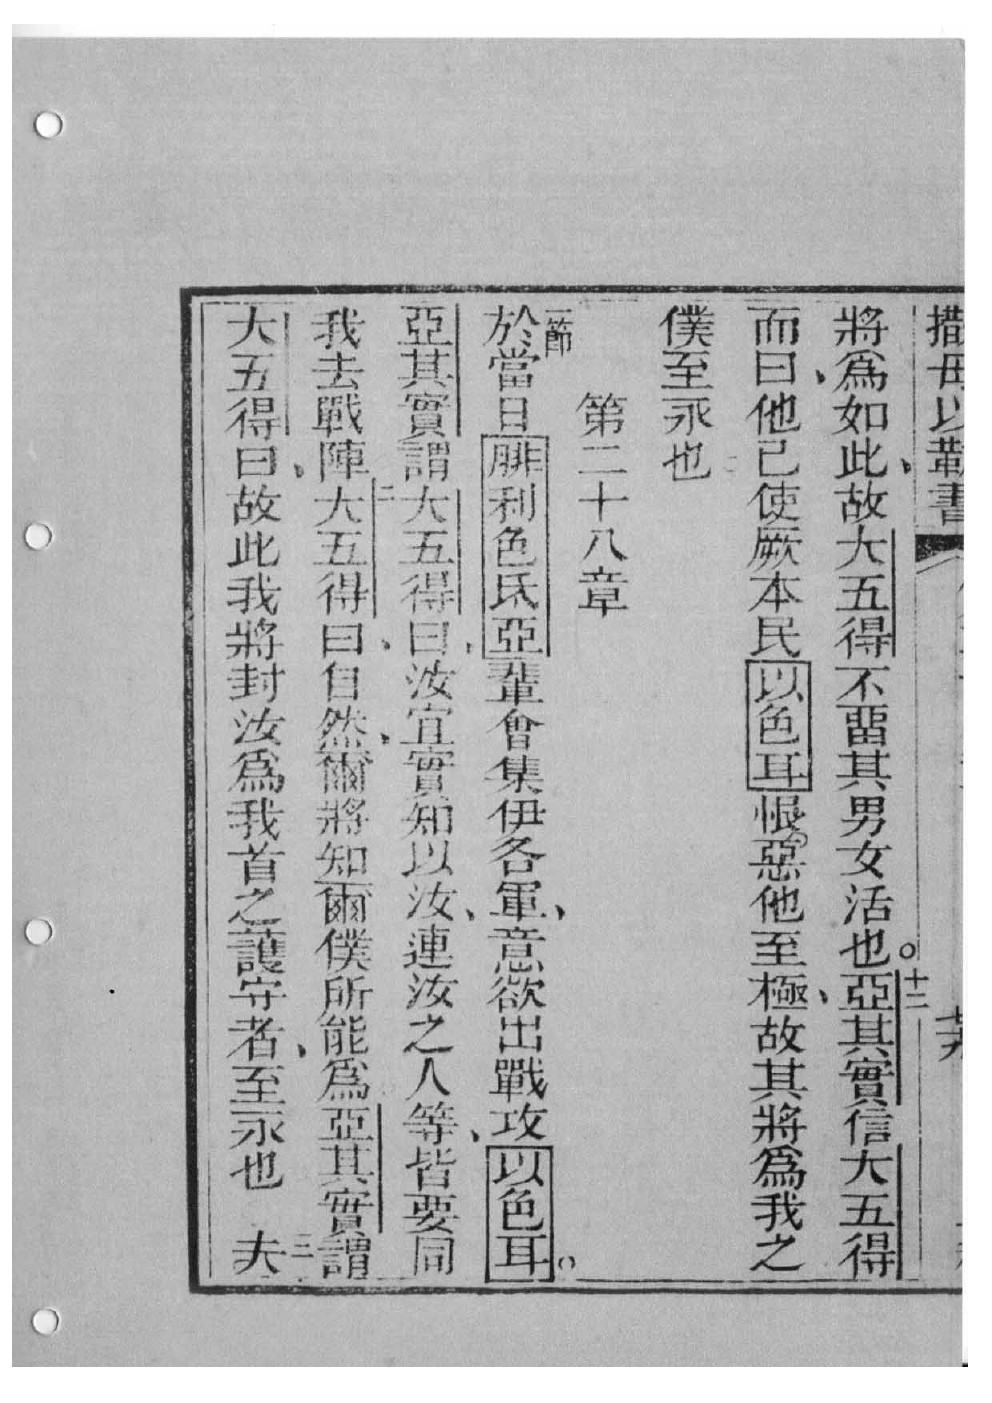 撒母以勒書
廿九
將爲如此、故大五得不畱其男女活也。十二亞其實信大五得
而曰、他已使厥本民以色耳恨惡他至極、故其將爲我之
僕至永也
第二十八章
一節於當日腓利色氏亞輩會集伊各軍、意欲出戰攻以色耳。
亞其實謂大五得曰、汝宜實知以汝、連汝之人等、皆要同
我去戰陣二大五得曰、自然、爾將知爾僕所能爲亞其實謂
大五得曰、故此我將封汝爲我首之護守者、至永也 三夫